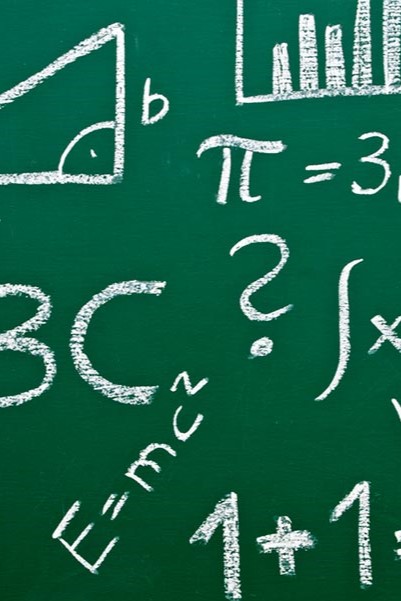 b
π = 3,
3C ? ∫x
E=mc²
1+1=